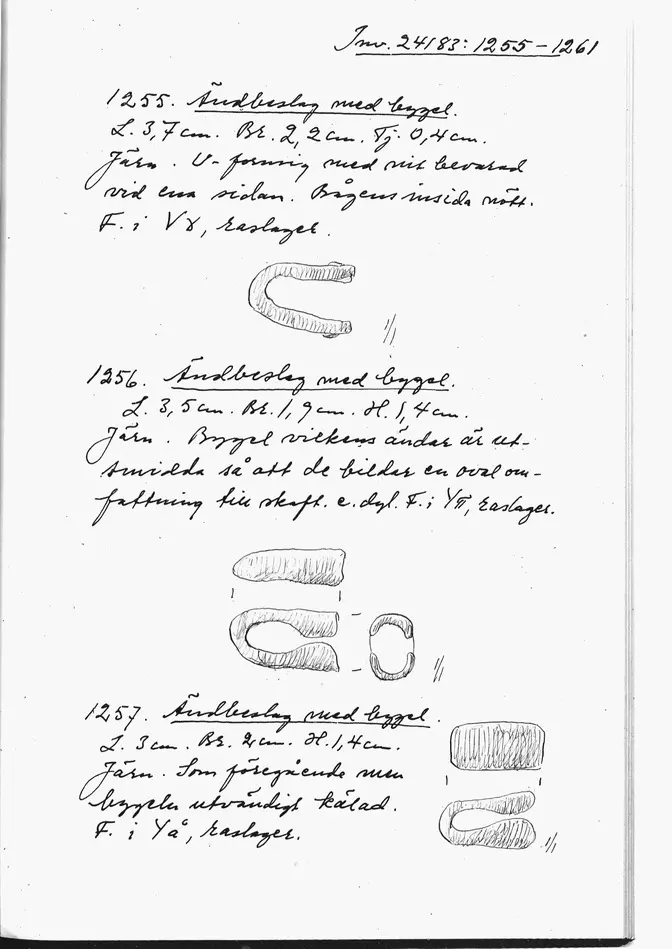 Inv. 24183: 1255 – 1261
1255. Ändbeslag med bygel.
L. 3,7 cm. Br. 2,2 cm. Tj. 0,4 cm.
Järn. U-formig med nit bevarad
vid ena sidan. Bågens insida nött.
F. i VX, raslager.
1/1
1256. Ändbeslag med bygel.
L. 3,5 cm. Br. 1,9 cm. H. 1,4 cm.
Järn. Bygel vilkens ändar är ut-
smidda så att de bildar en oval om-
fattning till skaft. e. dyl. F. i Yπ, raslager.
1/1
1257. Ändbeslag med bygel.
L. 3 cm. Br. 2 cm. H. 1,4 cm.
Järn. Som föregående men
bygeln utvändigt kälad.
F. i Yå, raslager.
1/1